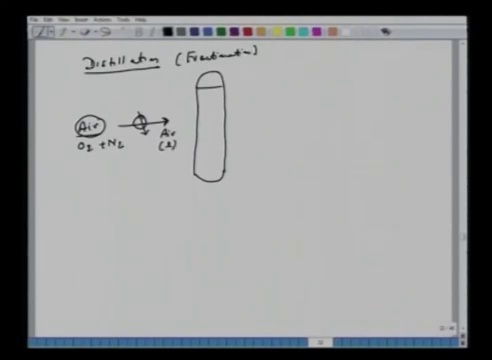 File Edit View Insert Actions Tools Help
Distillation (Fractionation)
Air
O2 + N2
Air
(l)